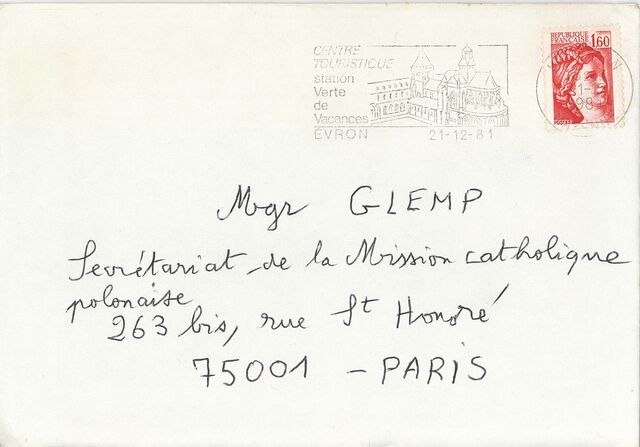 CENTRE
TOURISTIQUE
station
Verte
de
Vacances
ÉVRON 21-12-81
REPUBLIQUE
FRANÇAISE 1,60
Mgr GLEMP
Secrétariat de la Mission catholique
polonaise
263 bis, rue St Honoré
75001 - PARIS